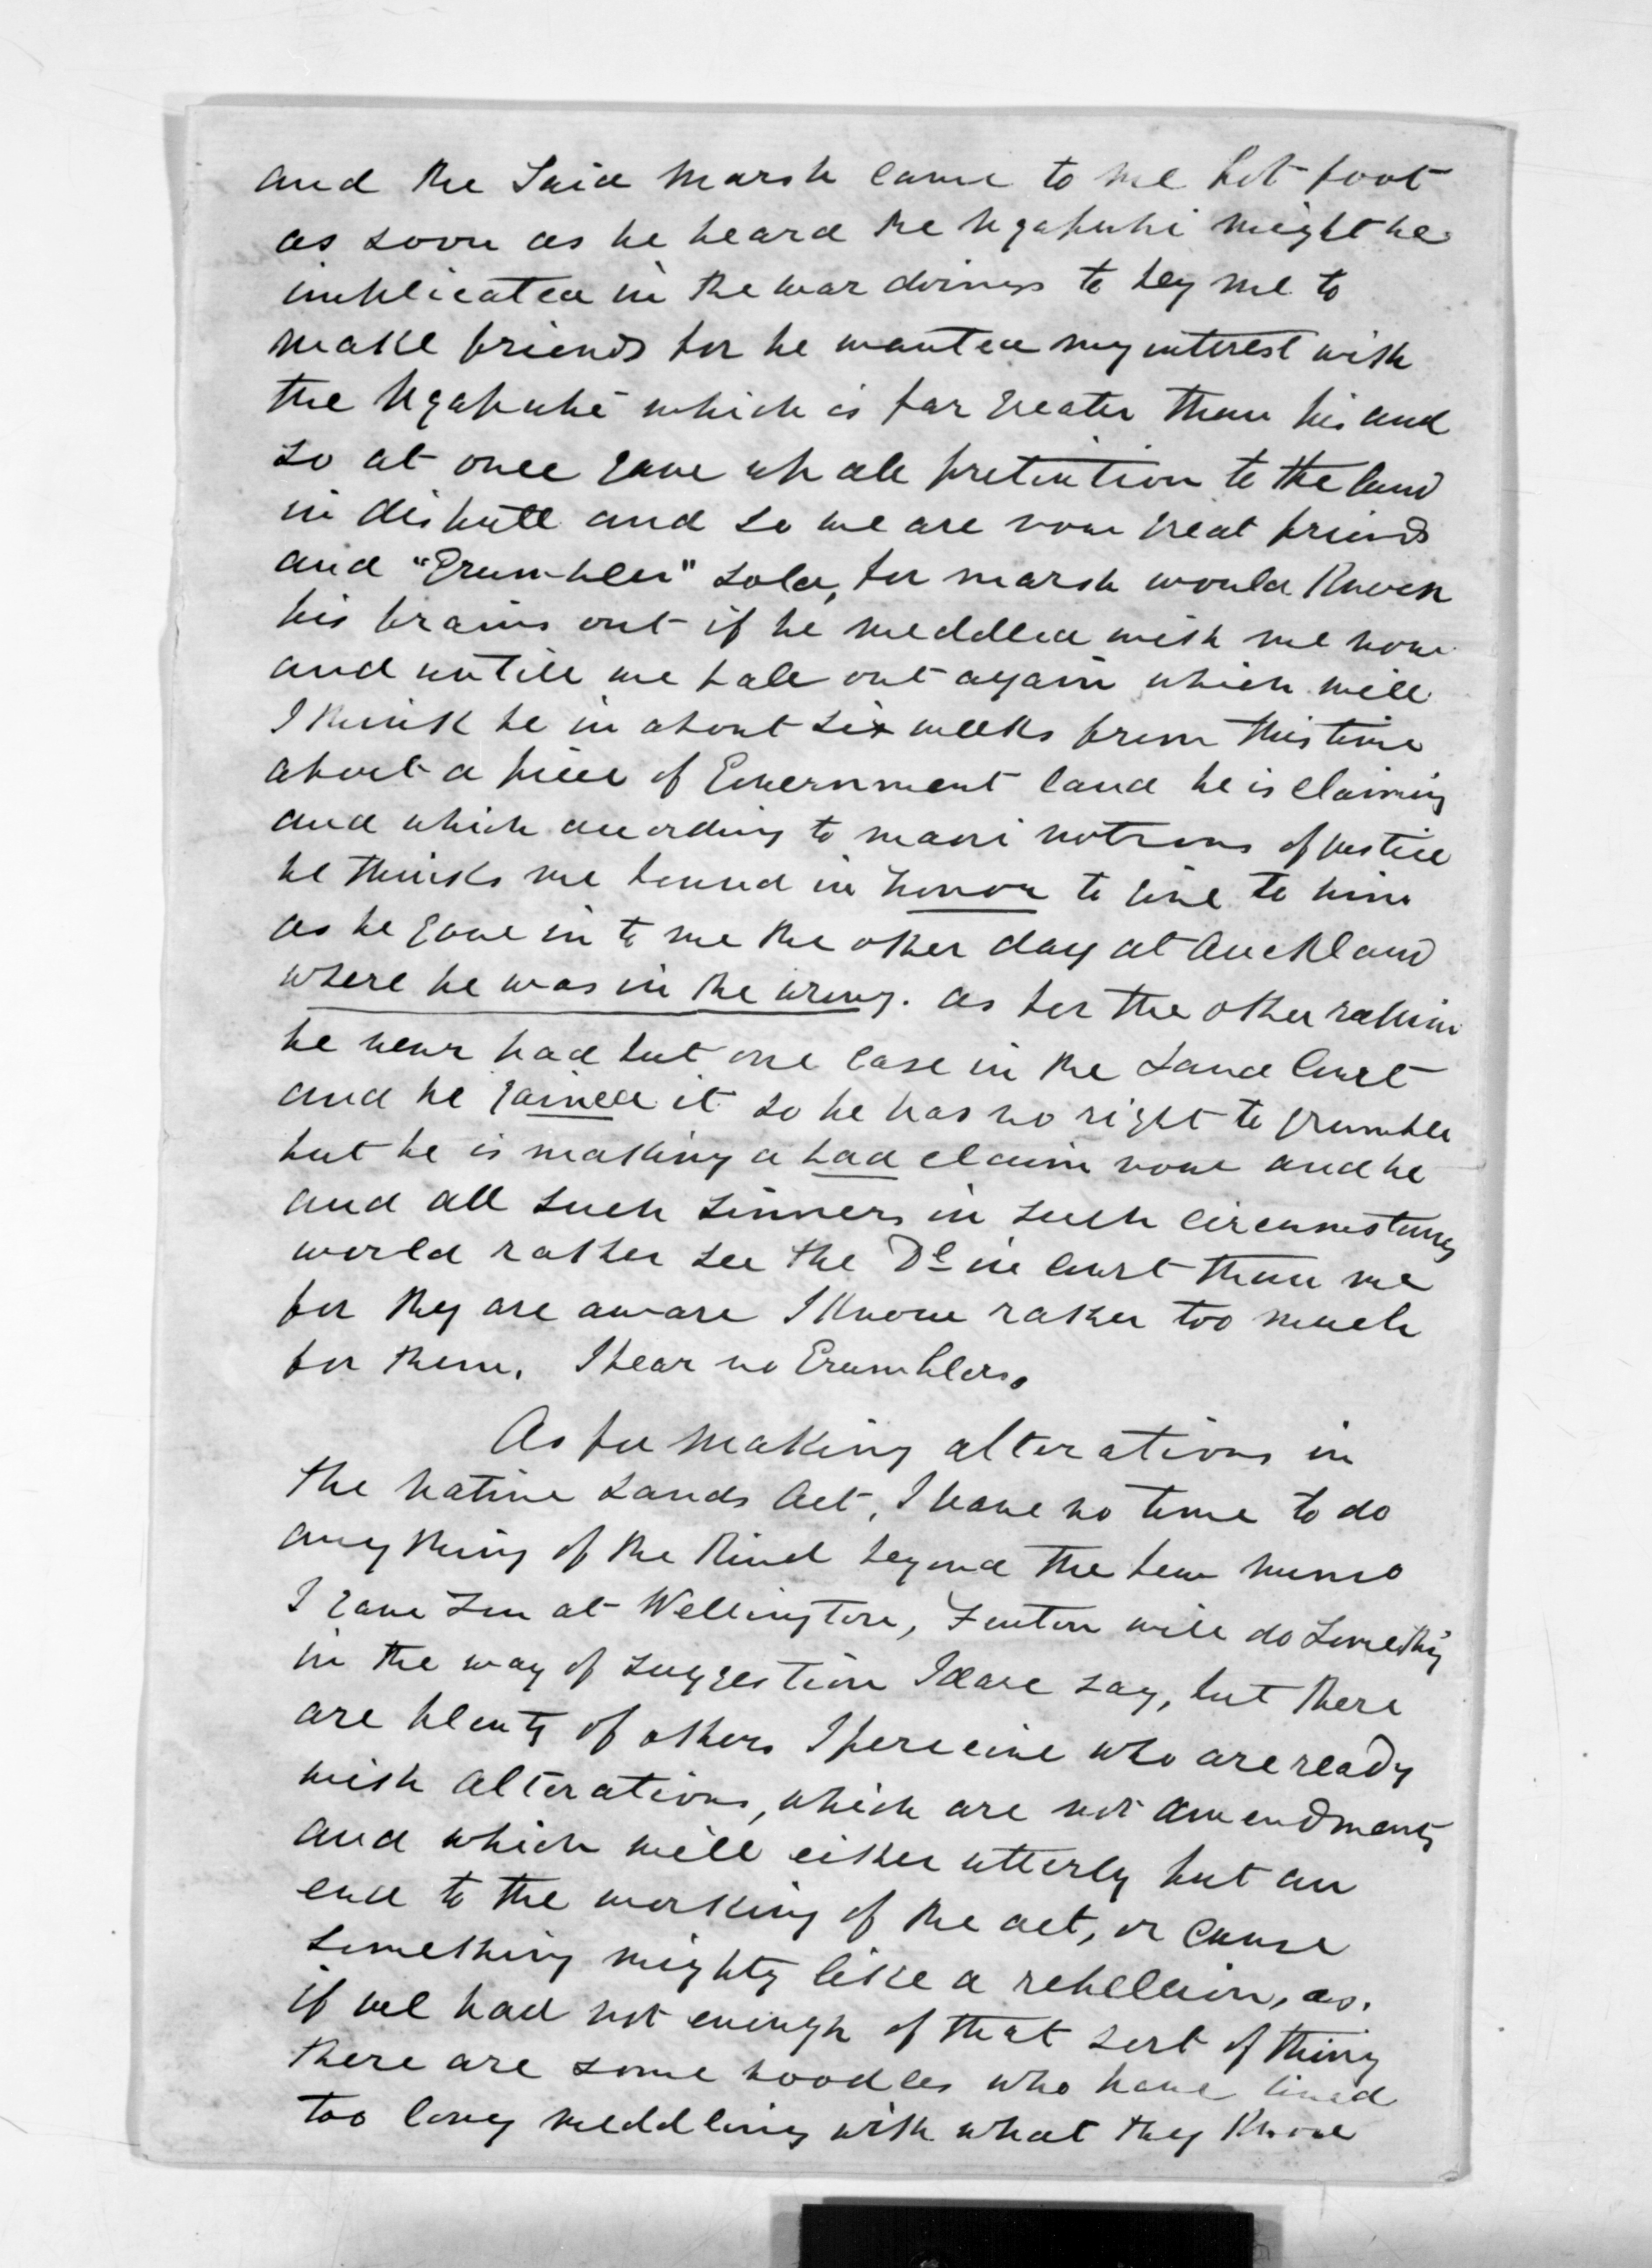 and the said Marsh came to me hot foot
as soon as he heard the Ngapuhi might be
implicated in the war doings to beg me to
make friends for he wanted my interest with
the Ngapuhi which is far greater than his and
so at once gave up all pretention to the land
in dispute and so we are now great friends
and "Grumbler" sold, for Marsh would knock
his brains out if he meddled with me now
and untill we fall out again which will
I think be in about six weeks from this time
about a piece of Government land he is claiming
and which according to maori notions of justice
he thinks me bound in honor to give to him
as he gave in to me the other day at Auckland
where he was in the wrong. as for the other
he never had but one case in the Land Court
and he gained it so he has no right to grumble
but he is making a bad claim now and he
and all such sinners in such circumstances
would rather see the Dl in Court than me
for they are aware I know rather too much
for them. I fear no Grumblers.
As for making alterations in
the Native Lands Act, I have no time to do
any thing of the kind beyond the few memo
I gave you at Wellington, Fenton will do something
in the way of suggestion I dare say, but there
are plenty of others I perceive who are ready
with alterations, which are not amendments
and which will either utterly put an
end to the working of the act, or cause
something mighty like a rebellion, as.
if we had not enough of that sort of thing
there are some noodles who have lived
too long meddling with what they know